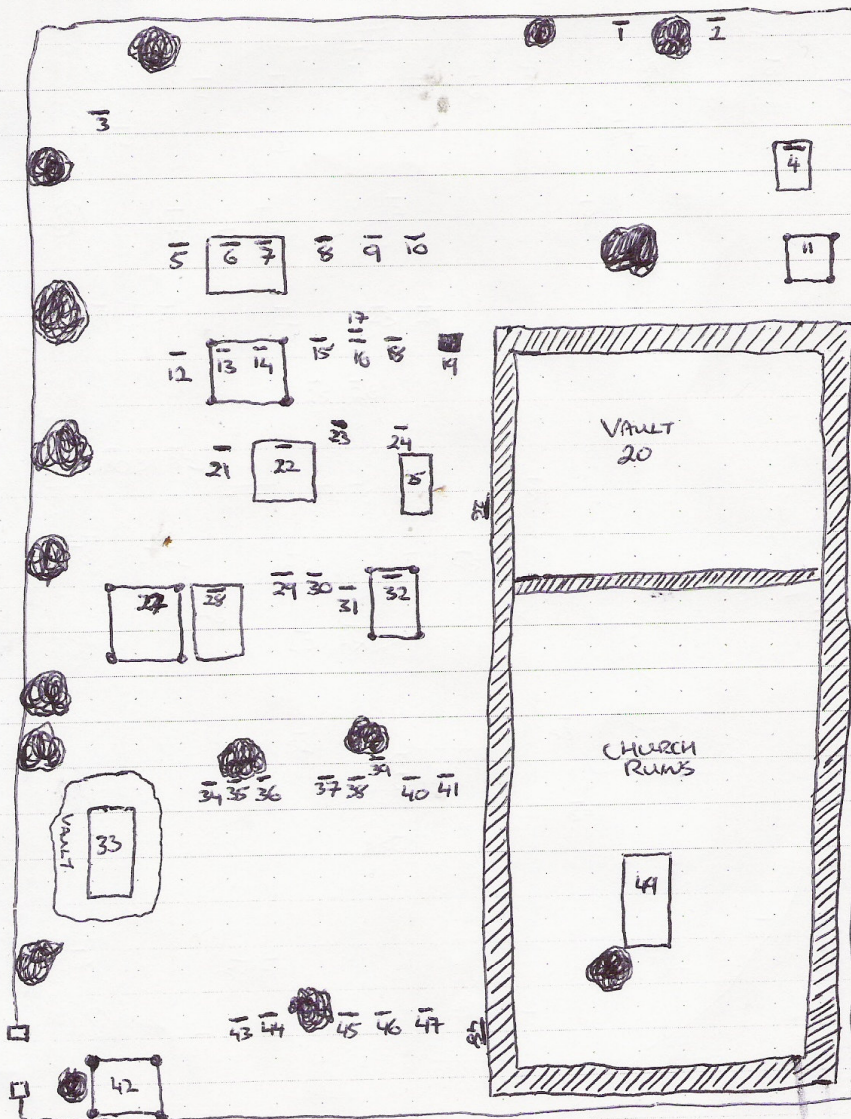 1 2
3
4
5 6 7 8 9 10
11
17
12 13 14 15 16 18 19
VAULT
20
23 24
21 22 25
26
27 28 29 30 31 32
CHURCH
RUINS
39
34 35 36 37 38 40 41
VAULT
33
49
43 44 45 46 47
48
42